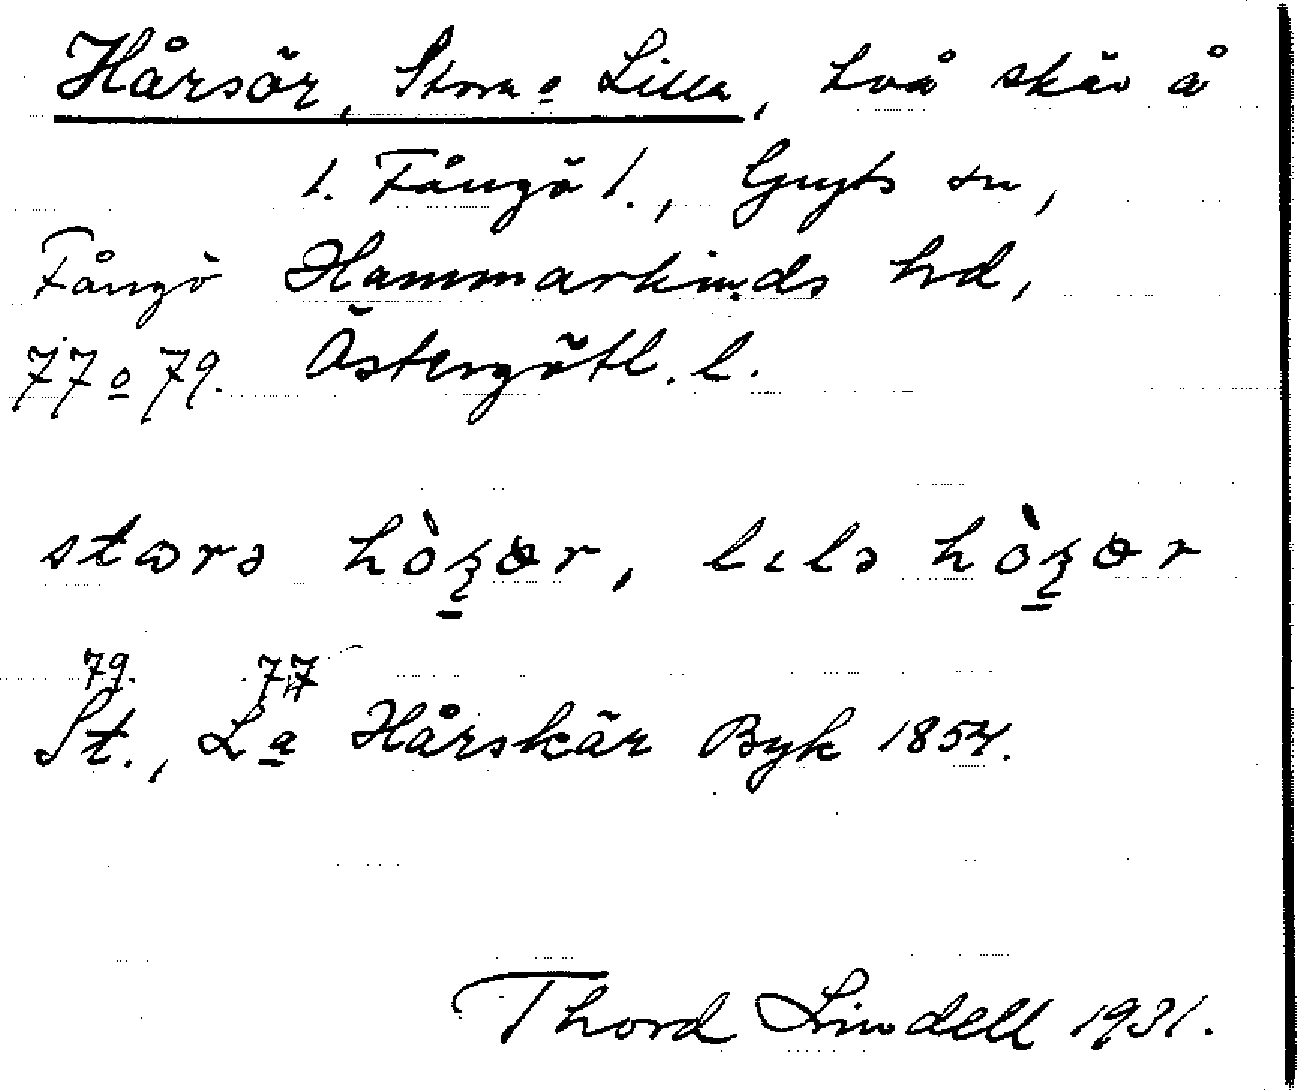 Hårsör, Stora o Lilla, två skär å
1. Fångö 1., Gryts sn,
Fångö Hammarkinds hd,
77 o 79. Östergötl. l.
79. 77
St., La Hårskär Byk 1854.
Thord Lindell 1931.